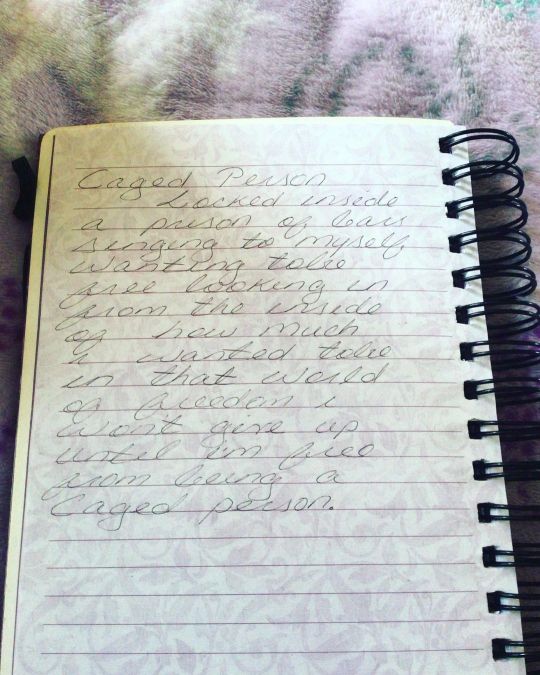 Caged Person
Locked inside
a prison of bars
singing to myself
wanting tobe
free looking in
from the inside
of how much
i wanted tobe
in that world
of freedom i
won't give up
until i'm free
from being a
Caged person.